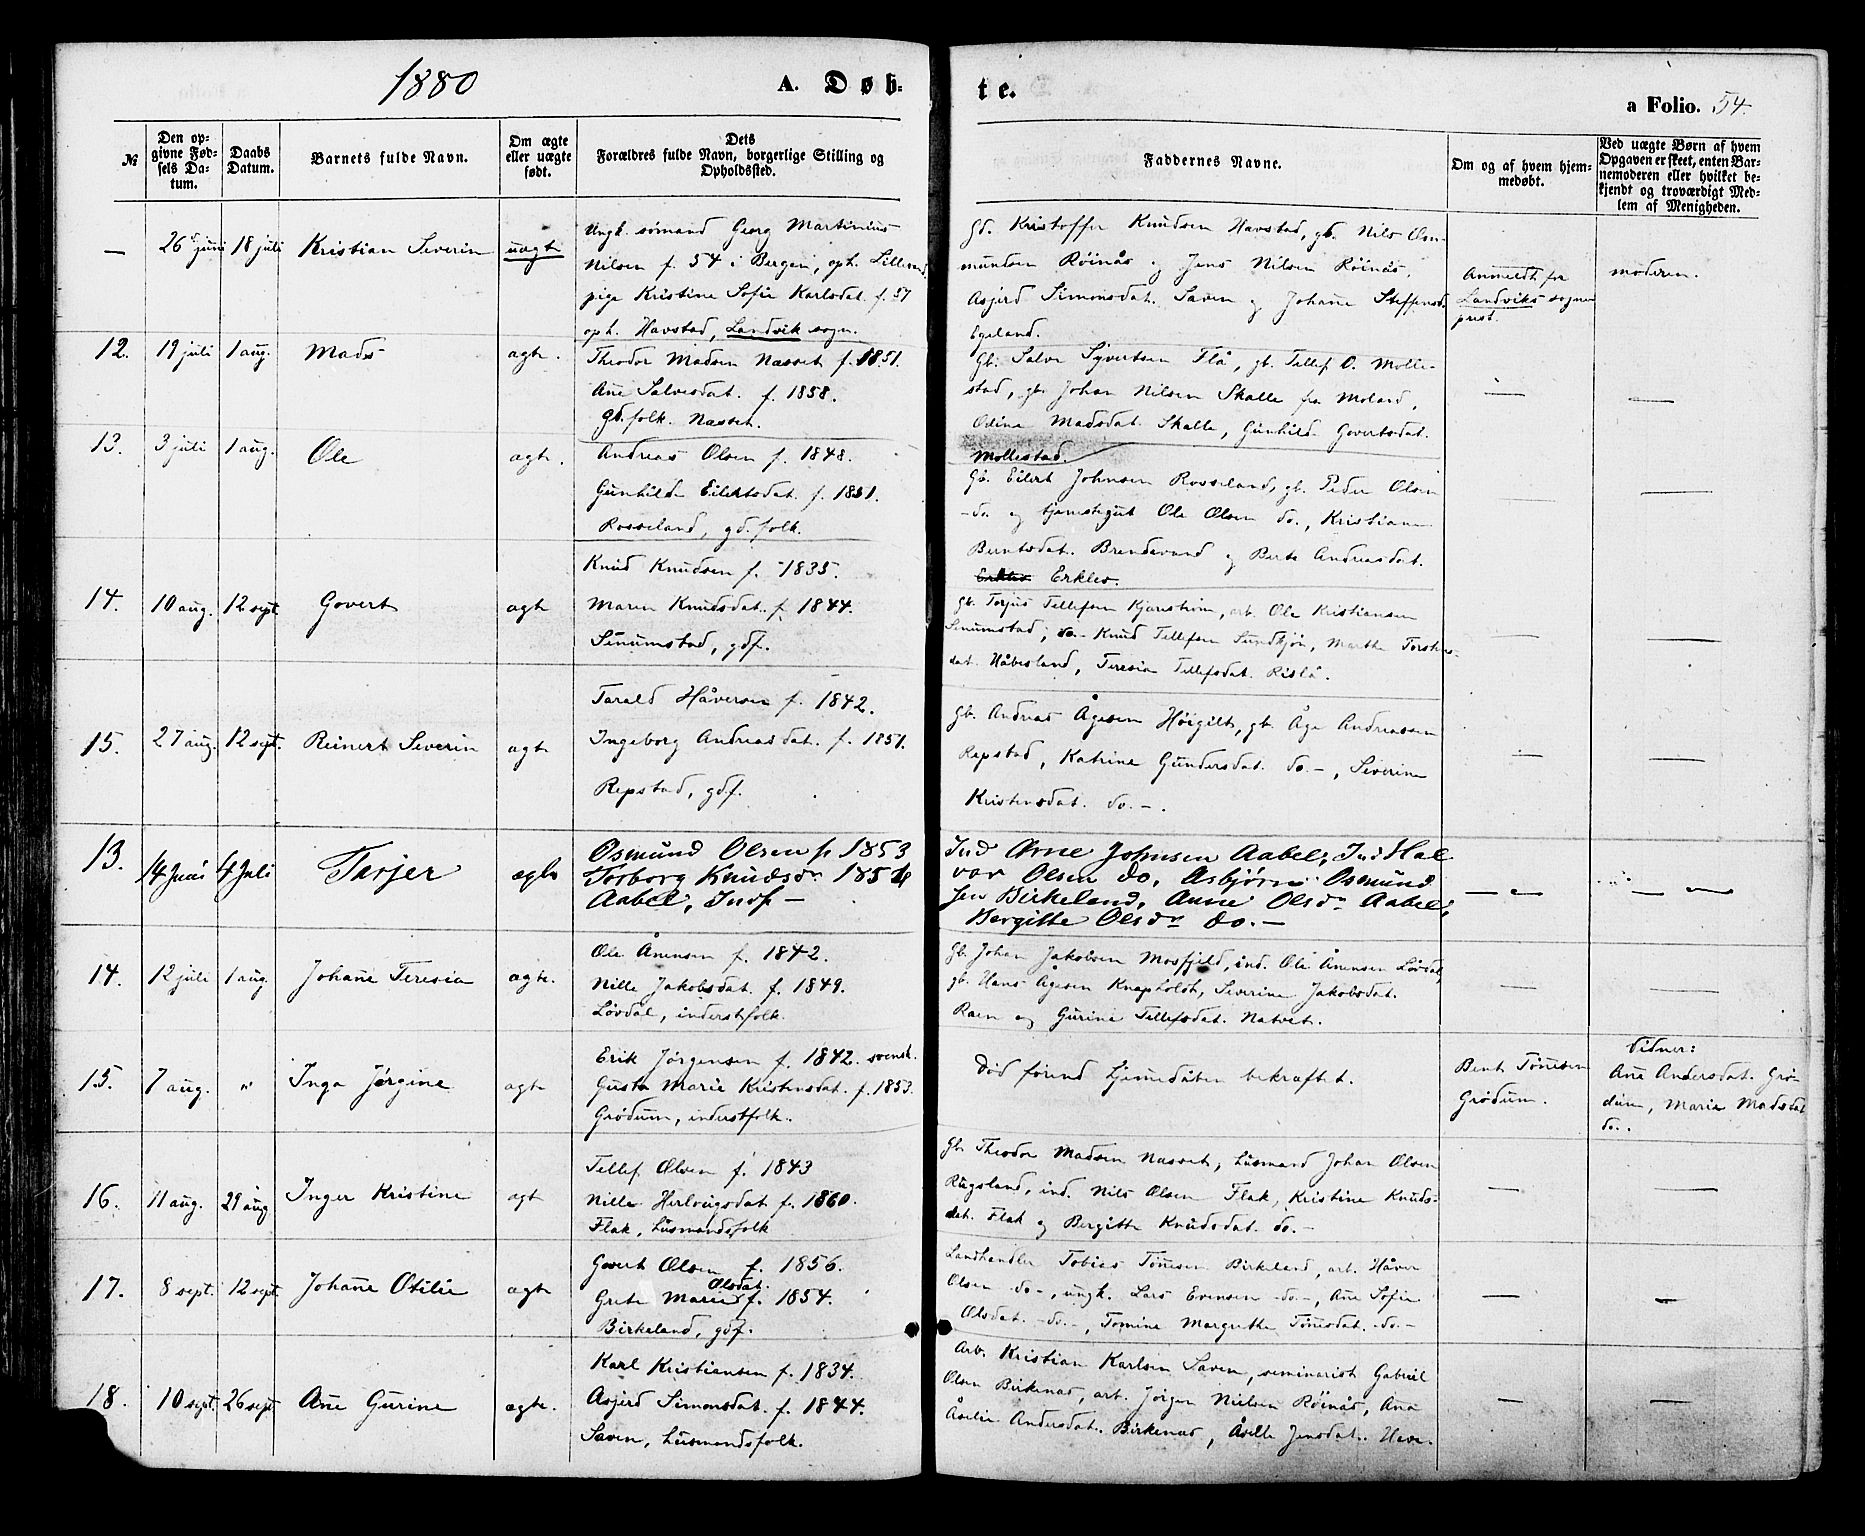 1880
A. Døb-
te.
a Folio. 54.
№
Den op-
givne Fød-
sels Da-
tum.
Daabs
Datum.
Barnets fulde Navn.
Om ægte
eller uægte
født.
Dets
Forældres fulde Navn, borgerlige Stilling og
Opholdssted.
Faddernes Navne.
Om og af hvem hjem-
medøbt.
Ved uægte Børn af hvem
Opgaven er skeet, enten Bar-
nemoderen eller hvilket be-
kjendt og troværdigt Med-
lem af Menigheden.
— 26 juni 18 juli Kristian Severin uagt
Ungk. sømand Georg Martinius
Nilsen f. 54 i Bergen, oph. Lillesand,
pige Kristine Sofie Karlsdat. f. 57
oph. Havstad, Landvik sogn.
Gd. Kristoffer Knudsen Havstad, gb. Nils Os-
mundsen Röinås og Jens Nilsen Röinås.
Asjerd Simonsdat. Saven og Johane Steffensd.
Egeland.
Anmeldt fra
Landviks sogne
prest.
moderen.
12. 19 juli 1 aug. Mads agte.
Theodor Madsen Nasset f. 1851.
Ane Salvesdat. f. 1858.
gb.folk. Nasset.
Gb. Salve Syvertsen Flå, gb. Tellef O. Molle-
stad, gb. Johan Nilsen Skalle fra Moland,
Odine Madsdat. Skalle, Gunhild Govertsdat.
Mollestad.
—
—
13. 3 juli 1 aug. Ole agte.
Andreas Olsen f. 1848.
Gunhilde Eilertsdat. f. 1851.
Rosseland, gd.folk.
Gb. Eilert Johnsen Rosseland, gb. Peder Olsen
-do. og tjenestegut Ole Olsen do., Kristiane
Berntsdat. Brendevand og Berte Andreasdat.
Erklev Erklev.
—
—
14. 10 aug. 12 sept. Govert agte
Knud Knudsen f. 1835.
Maren Knudsdat. f. 1844.
Sinumstad, gdf.
gb. Torjus Tellefsen Kjærström, arb. Ole Kristiansen
Senumstad, do.- Knud Tellefsen Sundtjön, Marthe Torstens-
dat. Håbesland, Teresia Tellefsdat. Rislå.
—
—
15. 27 aug. 12 sept. Reinert Severin agte
Tarald Håversen f. 1842.
Ingeborg Andreasdat. f. 1851.
Repstad, gdf.
Gb. Andreas Ågesen Hörgilt, gb. Åge Andreassen
Repstad, Katrine Gundersdat. do.-, Severine
Kristensdat. do.-.
—
—
13. 14 Juni 4 Juli Tarjer ægte
Osmund Olsen f 1853
Torborg Knudsdr 1854
Aabel, Indf —
Ind Arne Johnsen Aabel, Ind Hal
vor Olsen do, Asbjørn Osmund
sen Birkeland, Anne Olsdr Aabel,
Bergitte Olsdr do. —
—
—
14. 12 juli 1 aug. Johane Teresia agte.
Ole Ånensen f. 1842.
Nille Jakobsdat. f. 1849.
Lövdal, inderstfolk.
Gb. Johan Jakobsen Mosfjeld, ind. Ole Ånensen Lövdal,
gb. Hans Ågesen Knapholdt, Severine Jakobsdat.
Raen og Gurine Tellefsdat. Natvet.
—
—
15. 7 aug. " Inga Jörgine agte
Erik Jörgensen f. 1842. svensk.
Gusta Marie Kristensdat. f. 1853.
Grödum, inderstfolk.
Död förend hjemedåben bekræftet.
Bent Tönesen
Grödum.
Vidner:
Ane Andersdat. Grö-
dum, Marie Madsdat
do..
16. 11 aug. 29 aug Inger Kristine agt
Tellef Olsen f. 1843
Nille Herlougsdat f. 1860.
Flak, husmandsfolk
Gb Theodor Madsen Nasset, husmand Johan Olsen
Rugsland, ind. Nils Olsen Flak, Kristine Knuds-
dat. Flak og Bergitte Knudsdat. do.-
—
—
17. 8 sept. 12 sept Johane Otilie agte
Govert Olsen f. 1856.
Olsdat.
Grete Marie f. 1854.
Birkeland, gdf.
Landhandler Tobias Tönesen Birkeland, arb. Håver
Olsen -do-, ungk. Lars Evensen -do-, Ane Sofie
Olsdat. -do.-, Tomine Margrethe Tönesdat. -do.-
—
—
18. 10 sept. 26 sept Ane Gurine agte.
Karl Kristiansen f. 1834.
Asjerd Simonsdat. f. 1844.
Saven, husmandsfolk.
Arb. Kristian Karlsen Saven, seminarist Gabriel
Olsen Birkenas, arb. Jörgen Nielsen Röinås, Ane
Åselie Andersdat. Birkenas, Åsille Jensdat. Have-
—
—